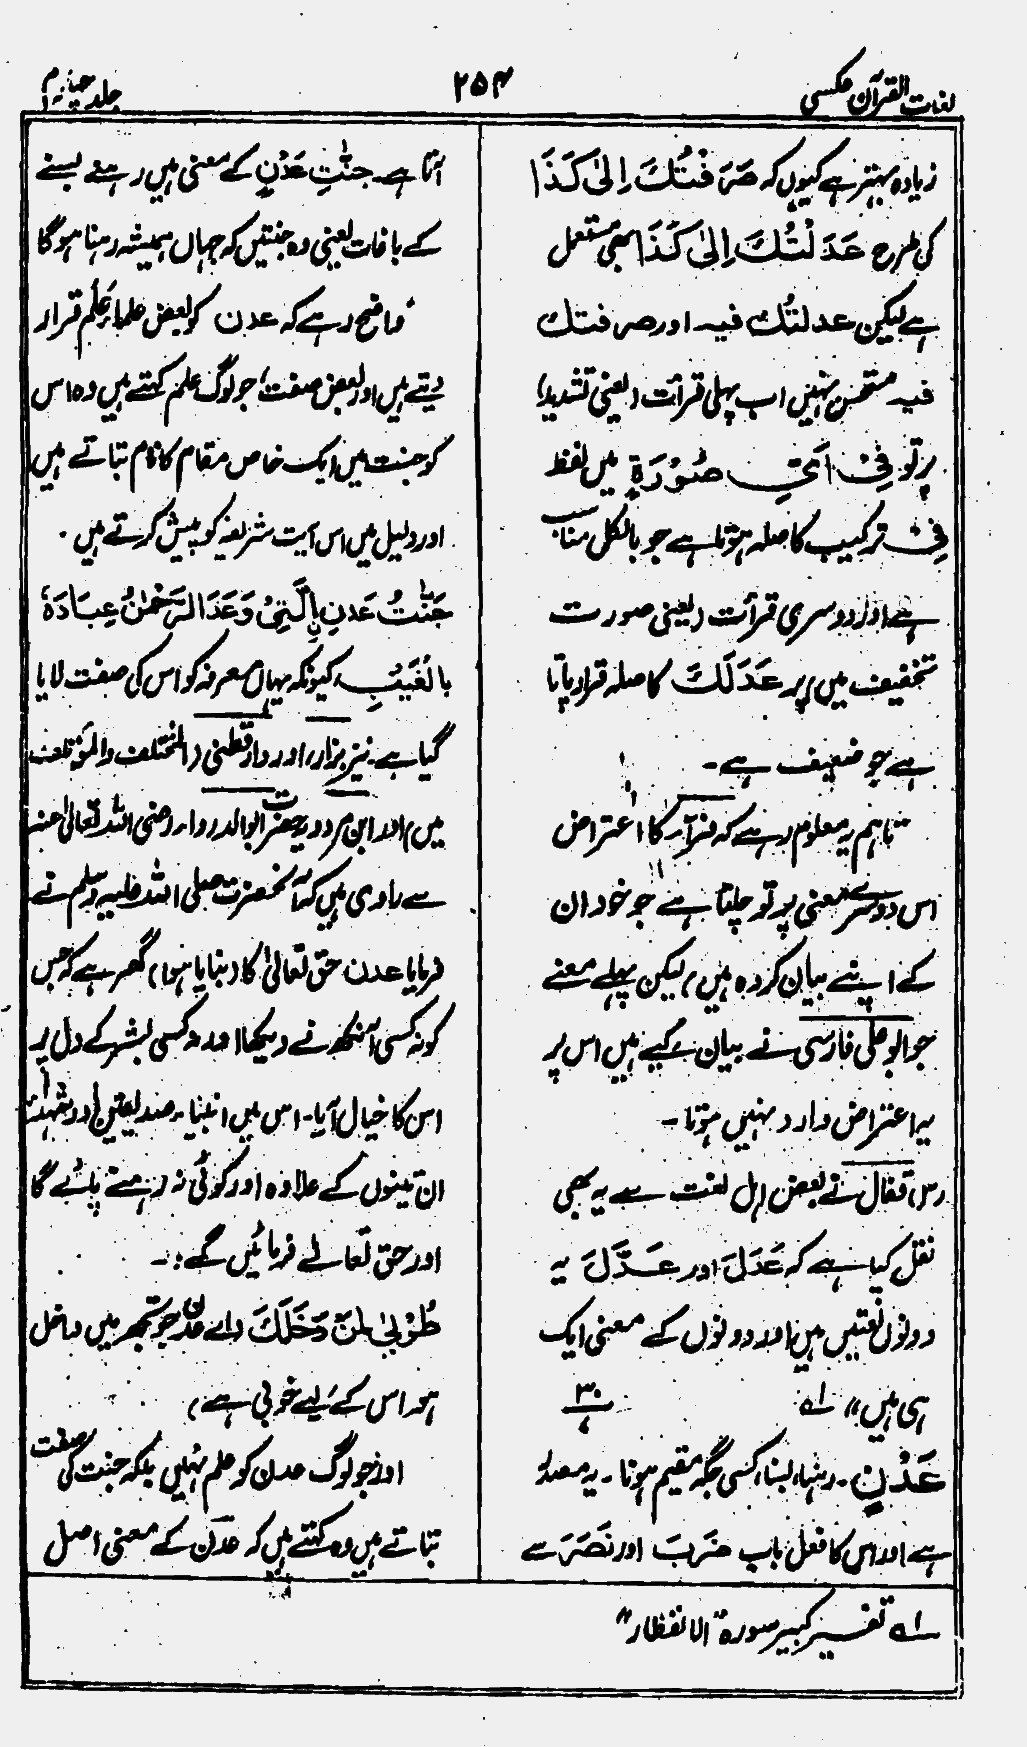 لغات القرآن عکسی
۲۵۴
جلد چہارم
زیادہ بہتر ہے کیوں کہ صَرَفْتُكَ اِلیٰ كَذَا
کی طرح عَدَلْتُكَ اِلیٰ كَذَا بھی مستعمل
ہے لیکن عدلتُك فیہ اور صرفتك
فیہ مستحسن نہیں اب پہلی قرأت (یعنی تشدید)
پر تو فِیْ اَیِّ صُوْرَةٍ میں لفظ
فِیْ ترکیب کا صلہ ہوتا ہے جو بالکل مناسب
ہے اور دوسری قرأت (یعنی صورت
تخفیف میں) پر عَدَلَكَ کا صلہ قرار پاتا
ہے جو ضعیف ہے۔
تاہم یہ معلوم رہے کہ فرّاء کا اعتراض
اس دوسرے معنی پر تو چلتا ہے جو خود ان
کے اپنے بیان کردہ ہیں، لیکن پہلے معنے
جو ابو علی فارسی نے بیان کیے ہیں اس پر
یہ اعتراض وارد نہیں ہوتا۔
قفال نے بعض اہل لغت سے یہ بھی
نقل کیا ہے کہ عَدَلَ اور عَدَّلَ یہ
دونوں لغتیں ہیں اور دونوں کے معنی ایک
ہی ہیں" لہ
عَدْنٍ۔ رہنا، بسنا، کسی جگہ مقیم ہونا۔ یہ مصدر
ہے اور اس کا فعل باب ضَرَبَ اور نَصَرَ سے
آتا ہے۔ جنّٰتِ عَدْنٍ کے معنی ہیں رہنے بسنے
کے باغات یعنی وہ جنتیں کہ جہاں ہمیشہ رہنا ہوگا
واضح رہے کہ عدن کو بعض علماء عَلَم قرار
دیتے ہیں اور بعض صفت، جو لوگ علم کہتے ہیں وہ اس
کو جنت میں ایک خاص مقام کا نام بتاتے ہیں
اور دلیل میں اس آیت شریفہ کو پیش کرتے ہیں۔
جَنّٰتُ عَدْنِ ِالَّتِیْ وَعَدَ الرَّحْمٰنُ عِبَادَهٗ
بِالْغَيْبِ، کیونکہ یہاں معرفہ کو اس کی صفت لایا
گیا ہے۔ نیز بزار، اور دارقطنی (المختلف والمؤتلف
میں) اور ابن مردویہ حضرت ابوالدرداء رضی اللہ تعالیٰ عنہ
سے راوی ہیں کہ آنحضرت صلی اللہ علیہ وسلم نے
فرمایا عدن حق تعالیٰ کا (بنایا ہوا) گھر ہے کہ جس
کو نہ کسی آنکھ نے دیکھا اور نہ کسی بشر کے دل پر
اس کا خیال آیا۔ اس میں انبیاء، صدیقین اور شہداء
ان تینوں کے علاوہ اور کوئی نہ رہنے پائے گا
اور حق تعالےٰ فرمائیں گے:۔
طُوْبیٰ لِمَنْ دَخَلَكَ (اے عدن جو تجھ میں داخل
ہو اس کے لیے خوبی ہے)
اور جو لوگ عدن کو علم نہیں بلکہ جنت کی صفت
بتاتے ہیں وہ کہتے ہیں کہ عدن کے معنی اصل
لہ تفسیر کبیر سورہ "الانفطار"